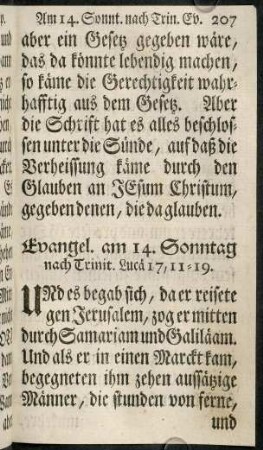 Am 14. Sonnt. nach Trin. Ev. 207
aber ein Gesetz gegeben wäre,
das da könnte lebendig machen,
so käme die Gerechtigkeit wahr-
hafftig aus dem Gesetz. Aber
die Schrift hat es alles beschlos-
sen unter die Sünde, auf daß die
Verheissung käme durch den
Glauben an JEsum Christum,
gegeben denen, die da glauben.
Evangel. am 14. Sonntag
nach Trinit. Lucä 17, 11-19.
UNd es begab sich, da er reisete
gen Jerusalem, zog er mitten
durch Samariam und Galiläam.
Und als er in einen Marckt kam,
begegneten ihm zehen aussätzige
Männer, die stunden von ferne,
und